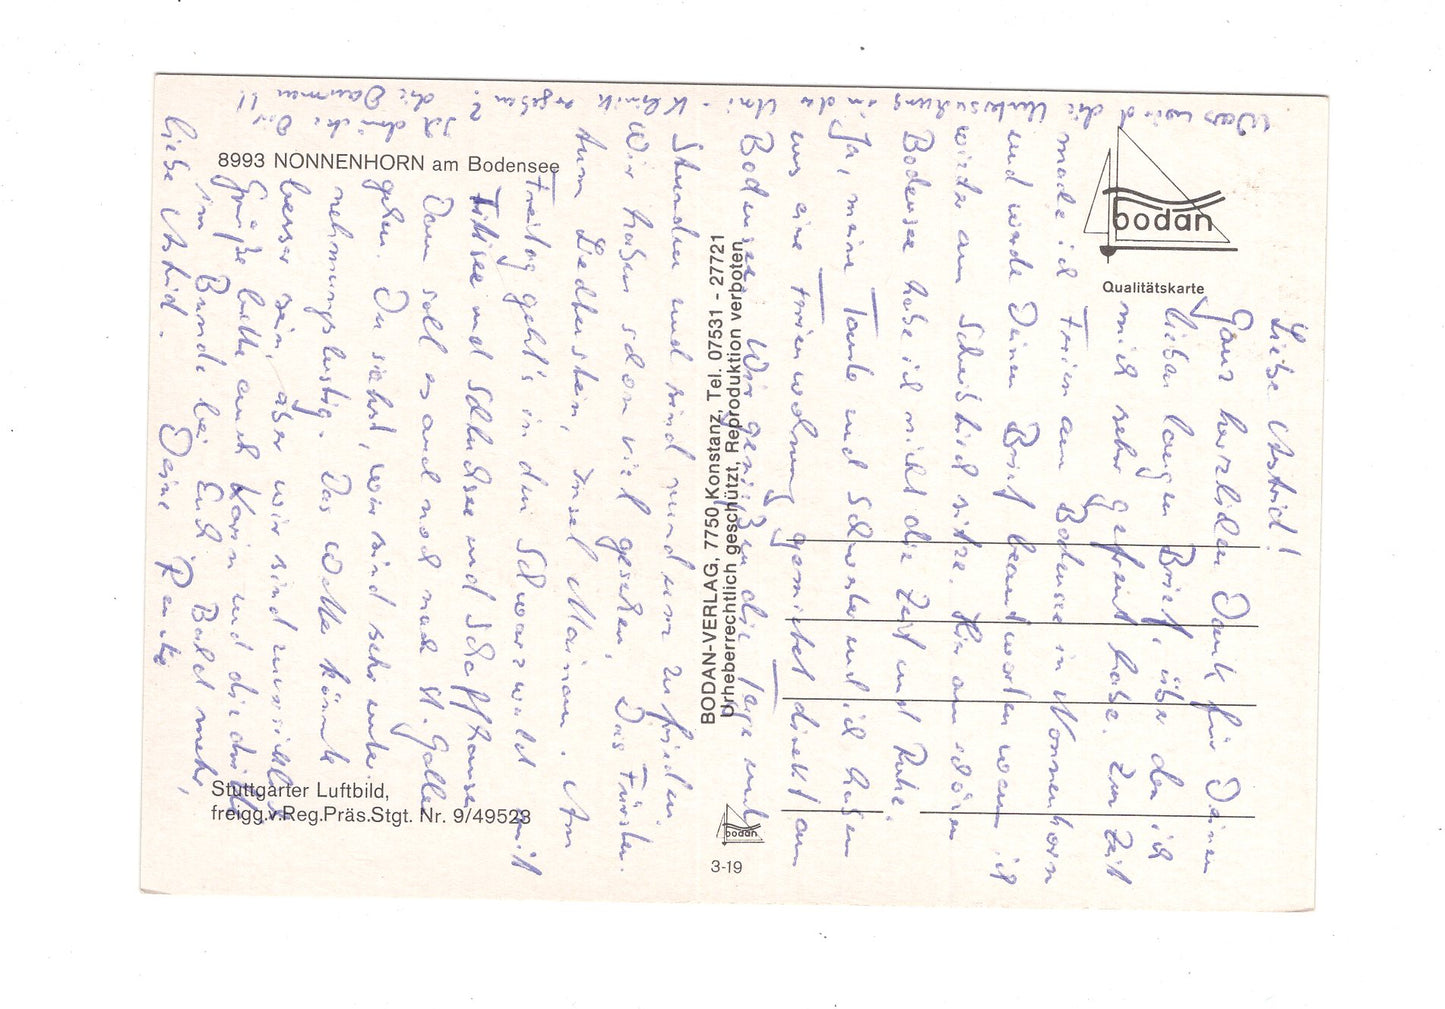 8993 NONNENHORN am Bodensee
bodan
Qualitätskarte
BODAN-VERLAG, 7750 Konstanz, Tel. 07531 - 27721
Urheberrechtlich geschützt, Reproduktion verboten
Stuttgarter Luftbild,
freigg.v.Reg.Präs.Stgt. Nr. 9/49523
bodan
3-19
Liebe Astrid!
Ganz herzlichen Dank für Deinen
lieben langen Brief, über den ich
mich sehr gefreut habe. Zur Zeit
mache ich Ferien am Bodensee in Nonnenhorn
und werde Deinen Brief beantworten wenn ich
wieder am Schreibtisch sitze. Hier am schönen
Bodensee habe ich nicht die Zeit und Ruhe.
Ja, meine Tante und Schwester und ich haben
uns eine Ferienwohnung gemietet direkt am
Bodensee. Wir genießen die Tage und
Stunden und sind rundum zufrieden.
Wir haben schon viel gesehen, Das Fürsten-
tum Liechtenstein, Insel Mainau. Am
Freitag geht's in den Schwarzwald mit
Titisee und Schluchsee und Schaffhausen
Dann soll es auch noch nach St. Gallen
gehen. Du siehst, wir sind sehr unter-
nehmungslustig. Das Wetter könnte
besser sein, aber wir sind
Grüße bitte auch Karin und
im Bunde bei Euch. Bald mehr,
liebe Astrid. Deine Renate
Was wird die Untersuchung in der Uni-Klinik ergeben?
Ich drücke Dir die Daumen!!